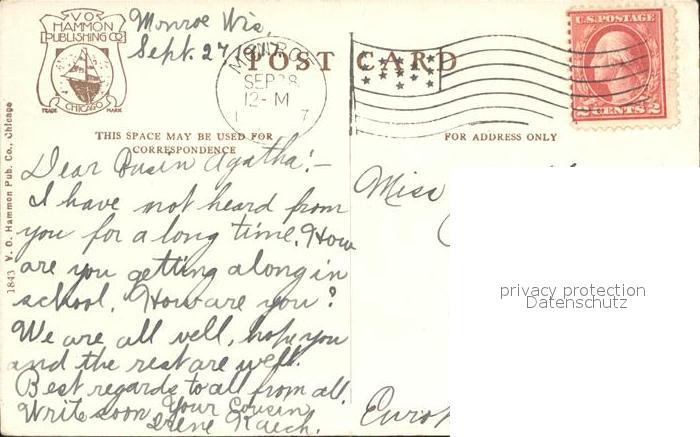 V. O.
HAMMON
PUBLISHING CO.
CHICAGO
TRADE MARK
Monroe Wis.
Sept. 27
POST CARD
MONROE
SEP 28
12- M
1 7
U.S. POSTAGE
2 CENTS 2
THIS SPACE MAY BE USED FOR
CORRESPONDENCE
FOR ADDRESS ONLY
1843 V. O. Hammon Pub. Co., Chicago
Dear Cusin Agatha:-
I have not heard from
you for a long time. How
are you getting along in
school. How are you?
We are all well, hope you
and the rest are well.
Best regards to all from all.
Write soon Your Cousin
Irene Kaech.
Miss
privacy protection
Datenschutz